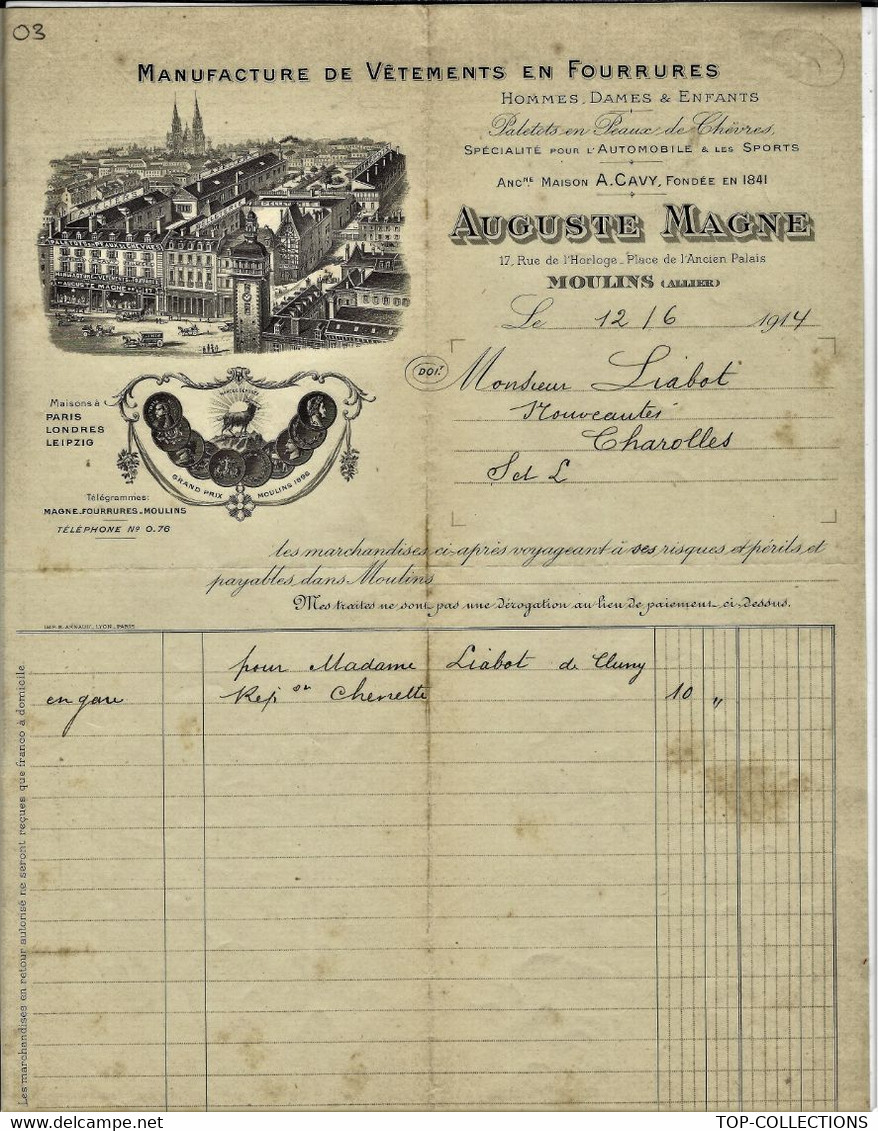 03
MANUFACTURE DE VÊTEMENTS EN FOURRURES
HOMMES, DAMES & ENFANTS
Paletots en Peaux de Chèvres,
SPÉCIALITÉ POUR L'AUTOMOBILE & LES SPORTS
ANCNE MAISON A. CAVY, FONDÉE EN 1841
AUGUSTE MAGNE
17, Rue de l'Horloge_Place de l'Ancien Palais
MOULINS (ALLIER)
Le 12/6 1914
ATELIERS
PALETOTS EN PEAUX DE CHÈVRES
AUGUSTE MAGNE
DOIT
Monsieur Liabot
Nouveautés
Charolles
S et L
Maisons à
PARIS
LONDRES
LEIPZIG
GRAND PRIX MOULINS 1896
Télégrammes:
MAGNE_FOURRURES_MOULINS
TÉLÉPHONE No 0.76
les marchandises ci-après voyageant à ses risques et périls et
payables dans Moulins
Mes traites ne sont pas une dérogation au lieu de paiement ci-dessus.
IMP. B. ARNAUD, LYON_PARIS
pour Madame Liabot de Cluny
en gare Rep on Chenette 10 "
Les marchandises en retour autorisé ne seront reçues que franco à domicile.
TOP-COLLECTIONS